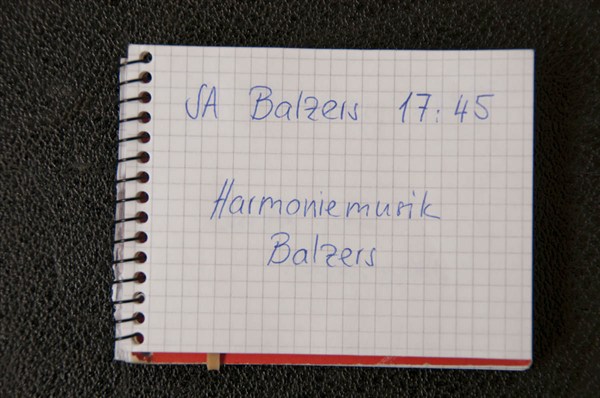 SA Balzers 17:45
Harmoniemusik
Balzers